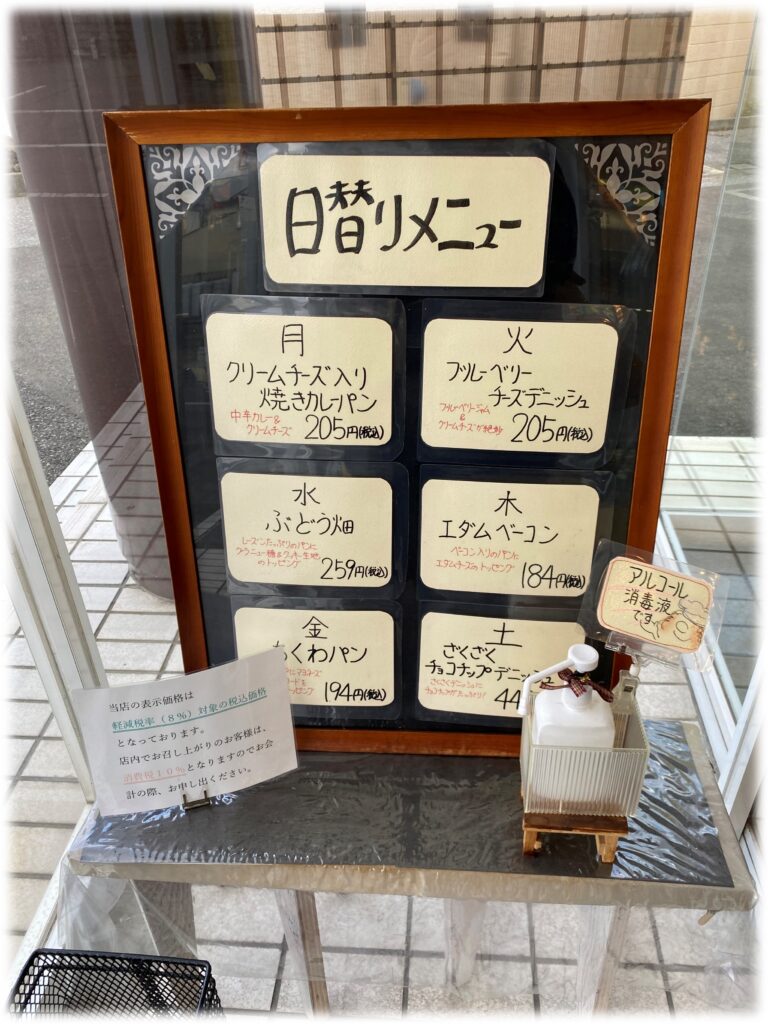 日替りメニュー
月
クリームチーズ入り
焼きカレーパン
中辛カレー&
クリームチーズ
205円(税込)
火
ブルーベリー
チーズデニッシュ
ブルーベリージャム
&
クリームチーズが絶妙
205円(税込)
水
ぶどう畑
レーズンたっぷりのパンに
グラニュー糖&クッキー生地
のトッピング
259円(税込)
木
エダムベーコン
ベーコン入りのパンに
エダムチーズのトッピング
184円(税込)
金
ちくわパン
にマヨネーズ
ードを
ッピング
194円(税込)
土
ざくざく
チョコチップデニッシュ
ざくざくデニッシュに
チョコチップがたっぷり!
44
アルコール
消毒液
です。
当店の表示価格は
軽減税率(8%)対象の税込価格
となっております。
店内でお召し上がりのお客様は、
消費税10%となりますのでお会
計の際、お申し出ください。